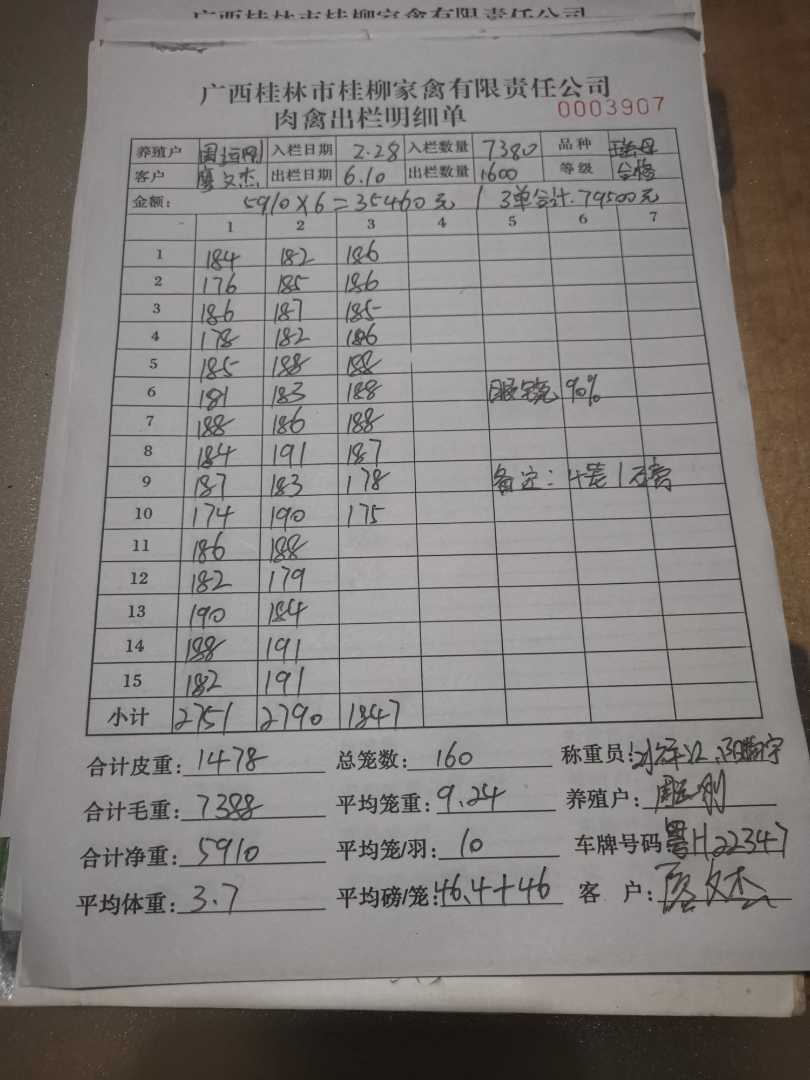 广西桂林市桂柳家禽有限责任公司
广西桂林市桂柳家禽有限责任公司
肉禽出栏明细单 0003907
养殖户 周运刚 入栏日期 2.28 入栏数量 7380 品种
客户 廖文杰 出栏日期 6.10 出栏数量 1600 等级 合格
金额: 5910×6=35460元 / 3单合计.79500元
1 2 3 4 5 6 7
1 184 182 186
2 176 185 186
3 186 187 185
4 178 182 186
5 185 188 188
6 181 183 188 90%
7 188 186 188
8 184 191 187
9 187 183 178 备注: 4装1
10 174 190 175
11 186 188
12 182 179
13 190 184
14 188 191
15 182 191
小计 2751 2790 1847
合计皮重: 1478 总笼数: 160 称重员:
合计毛重: 7388 平均笼重: 9.24 养殖户: 周运刚
合计净重: 5910 平均笼/羽: 10 车牌号码 粤H22347
平均体重: 3.7 平均磅/笼: 46.4+46 客 户: 廖文杰